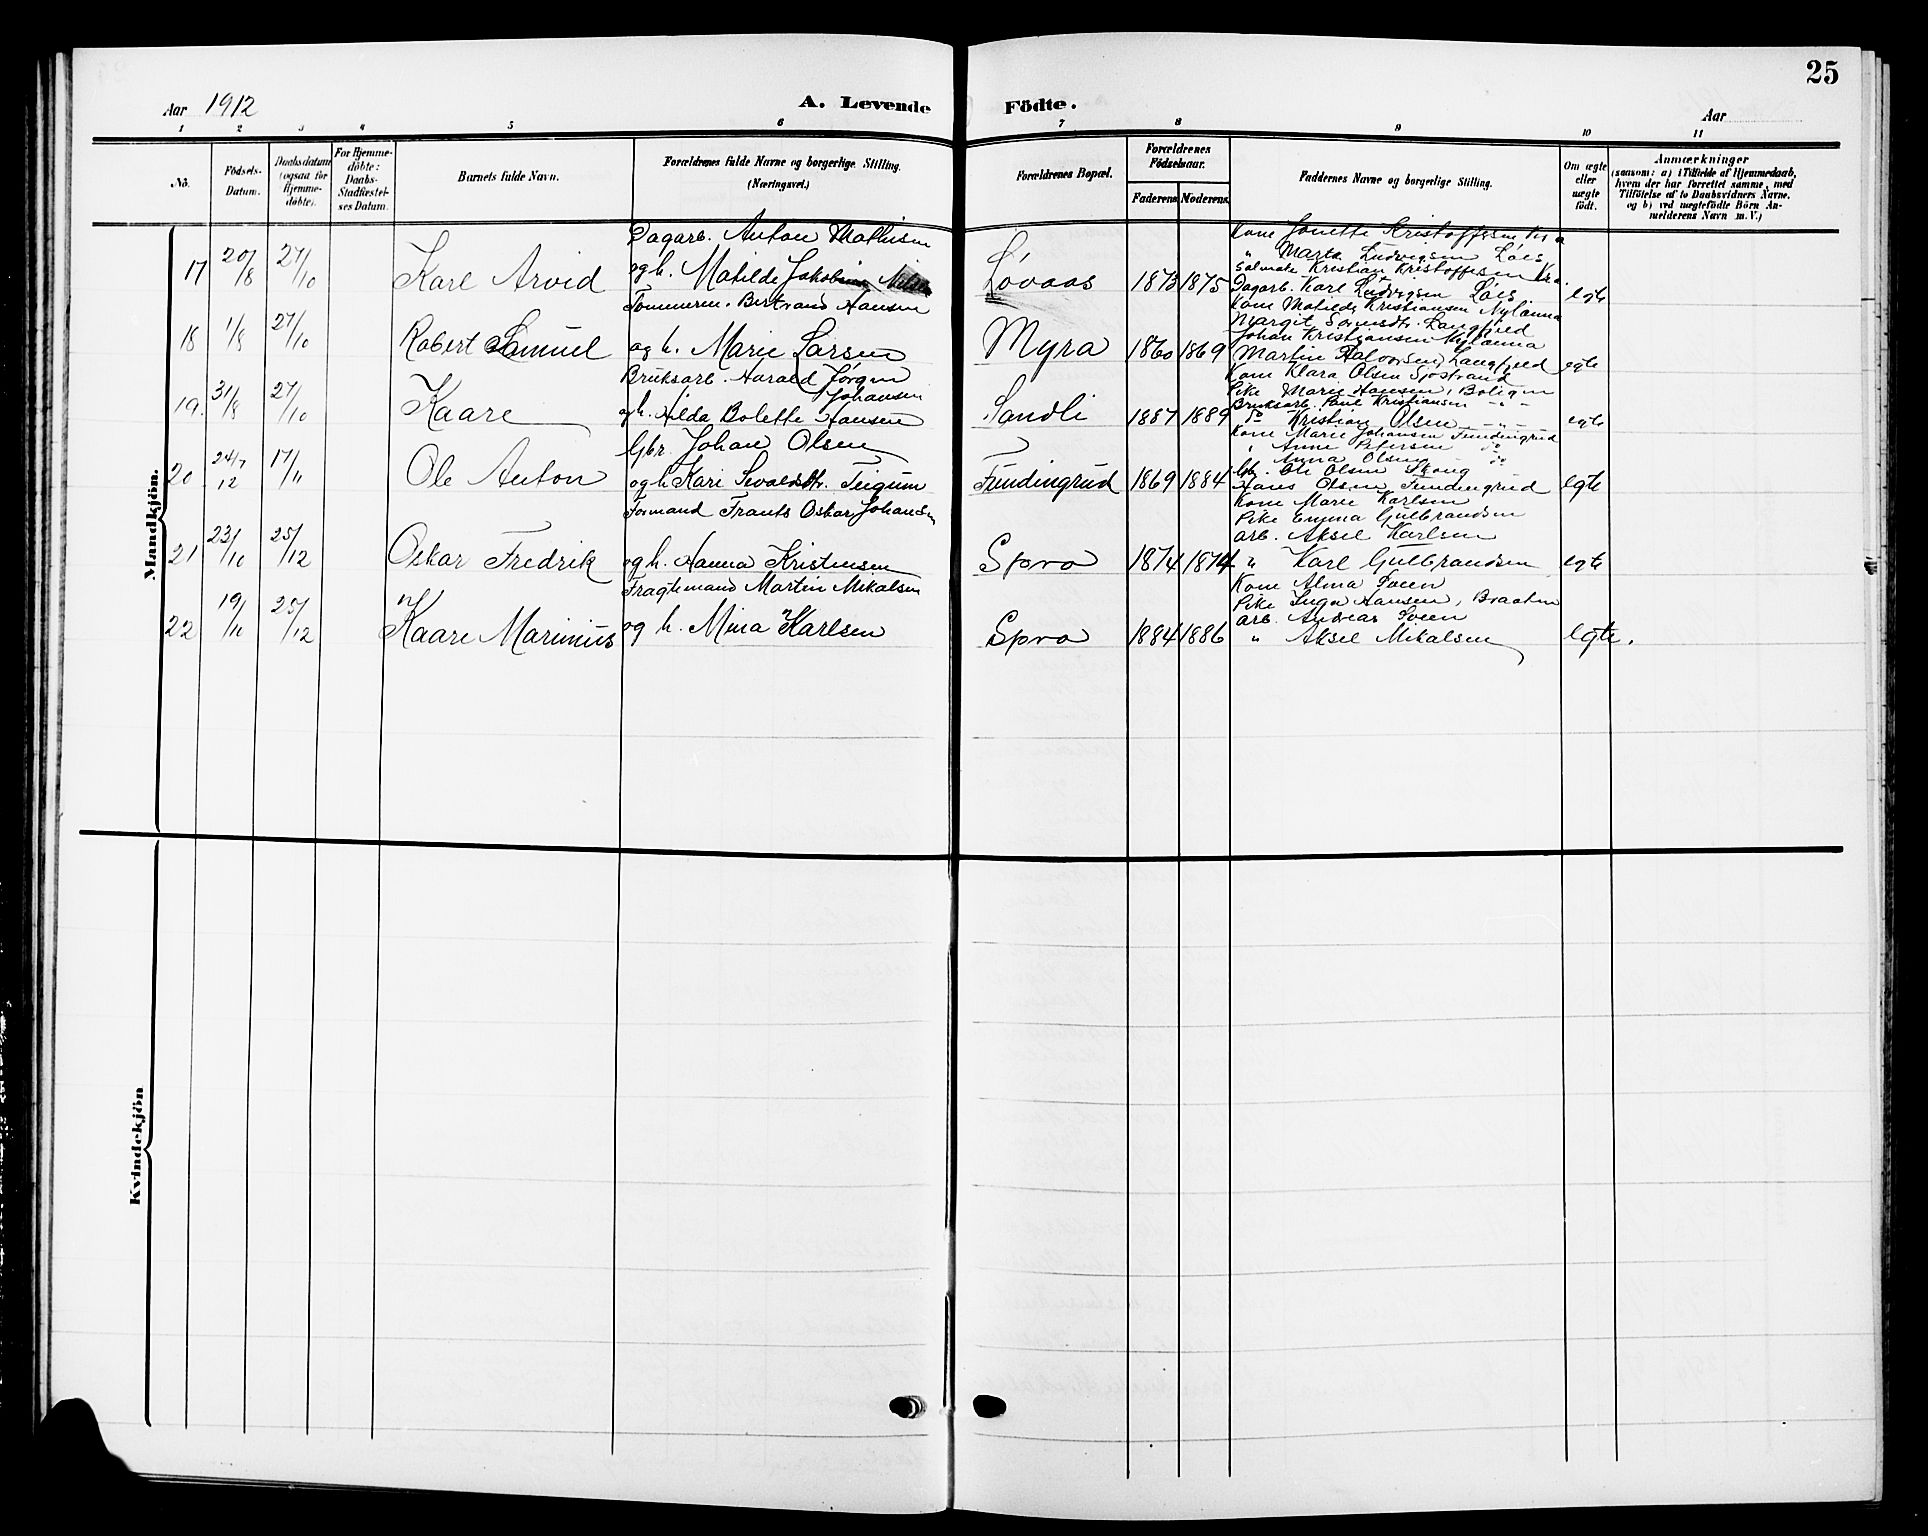 25
Aar 1912
A. Levende Födte.
Aar
1 2 3 4 5 6 7 8 9 10 11
No.
Födsels-
Datum.
Daabsdatum
(ogsaa for
Hjemme-
døbte).
For Hjemme-
döbte:
Daabs-
Stadfæstel-
ses Datum.
Barnets fulde Navn.
Forældrenes fulde Navne og borgerlige Stilling.
(Næringsvei.)
Forældrenes Bopæl.
Forældrenes
Födselsaar.
Faderens Moderens
Faddernes Navne og borgerlige Stilling.
Om ægte
eller
uægte
födt.
Anmærkninger
(saasom: a) i Tilfælde af Hjemmedaab,
hvem der har forrettet samme, med
Tilföielse af to Daabsvidners Navne.
og b) ved uægtefödte Börn An-
melderens Navn m. V.)
Mandkjön.
17 20/8 27/10 Karl Arvid
Dagarb. Anton Mathisen
og h. Matilde Jakobine
Lovaas 1873 1875
Kone Jonette Kristoffersen Kra
" Marta Ludvigsen Løes
Salmak. Kristian Kristoffersen Kra.
Dagarb. Karl Ludvigsen Løes
egte
18 1/8 27/10 Robert Samuel
Tømmerm. Bertrand Hansen
og h. Marie Larsen
Myra 1860 1869
Kone Matilde Kristiansen Nylænna
Margit Langfjeld
Johan Kristiansen Nylænna
Martin Halvorsen, Langfjeld
egte
19. 31/8 27/10 Kaare
Bruksarb. Harald Jørgen
Johansen
og h. Hilda Bolette Hansen
Sandli 1887 1889
Kone Klara Olsen Sjøstrand
Pike Marie Hansen, Boligen
Bruksarb. Paul Kristiansen - " -
Do Kristian Olsen - " -
egte
20 24/7 12 17/11 Ole Anton
Gbr. Johan Olsen
og h. Kari Sevaldsdtr. Teigum
Fundingrud 1869 1884
Kone Marie Johansen Fundingrud
" Anne Petersen do
" Anna Olsen do
Gb. Ole Olsen Skoug
Hans Olsen Fundingrud
egte
21 23/10 25/12 Oskar Fredrik
Formand Frants Oskar Johansen
og h. Hanna Kristensen
Spro 1874 1874
Kone Marie Karlsen
Pike Emma Gulbrandsen
arb. Aksel Karlsen
" Karl Gulbrandsen
egte
22 19/10 25/12 Kaare Marinius
Fragtemand Martin Mikalsen
og h. Mina Karlsen
Spro 1884 1886
Kone Alma Sveen
Pike Inga Hansen, Braaten
arb. Andreas Sveen
" Aksel Mikalsen
egte.
Kvindekjön